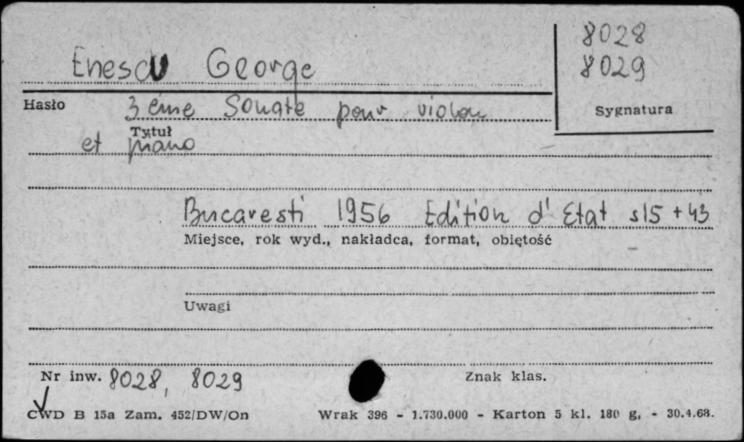 8028
Enescu George 8029
Hasło 3 ème Sonate pour violon Sygnatura
Tytuł
et piano
Bucaresti 1956 Edition d'Etat s15 + 43
Miejsce, rok wyd., nakładca, format, objętość
Uwagi
Nr inw. 8028, 8029 Znak klas.
CWD B 15a Zam. 452/DW/On Wrak 396 - 1.730.000 - Karton 5 kl. 180 g. - 30.4.68.